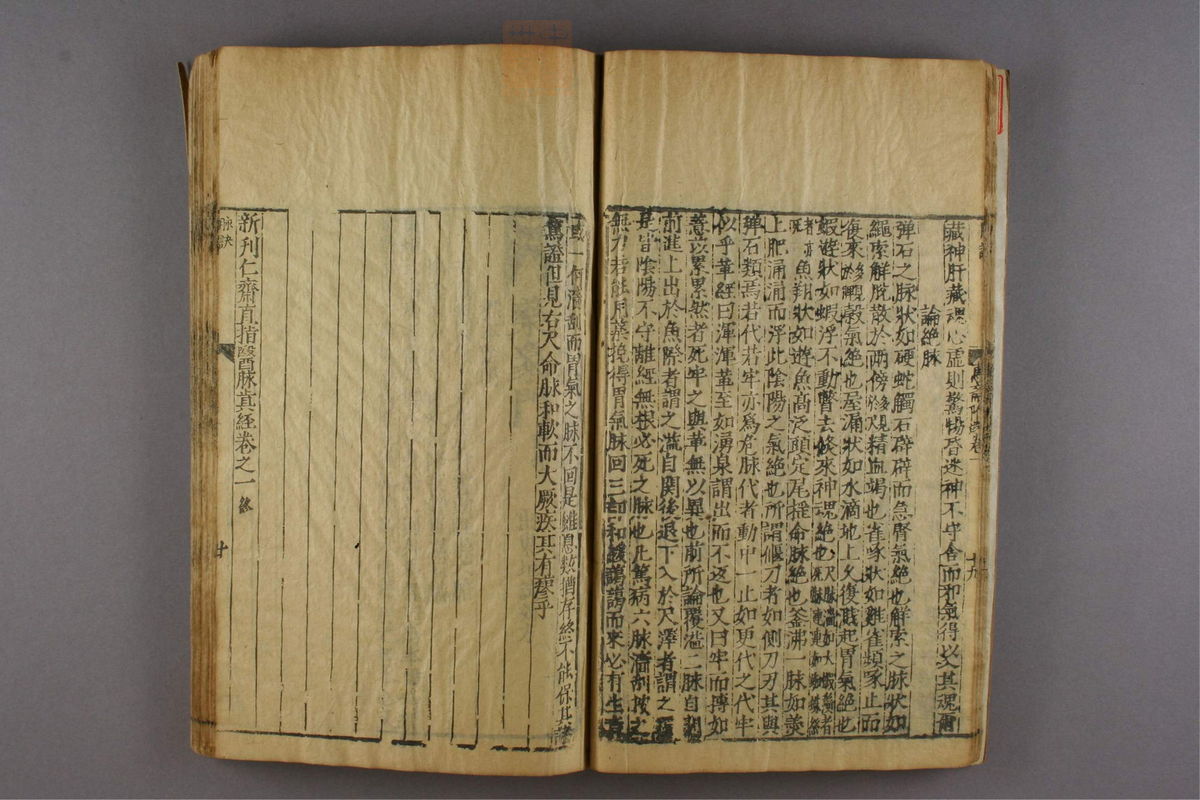 藏神肝藏魂心虛則驚惕昏迷神不守舍而邪氣得以交其魂爾
論絕脉
彈石之脉狀如硬蛇觸石辟辟而急腎氣絕也解索之脉狀如
繩索解脫散於兩傍精血竭也雀啄狀如雞雀頻啄止而
復來脾穀氣絕也屋漏狀如水滴地上久復濺起胃氣絕也
蝦遊狀如蝦浮不動瞥去倏來神魂絕也
魚翔狀如遊魚高泛頭定尾搖命脉絕也釜沸一脉如羹
上肥涌涌而浮此陰陽之氣絕也所謂偃刀者如側刀刃其與
彈石類焉若代若牢亦爲危脉代者動中一止如更代之代牢
以乎革經曰渾渾革至如湧泉謂出而不返也又曰牢而摶如
薏苡累累然者死牢之與革無以異也前所論覆溢二脉自關
前進上出於魚際者謂之溢自關後退下入於尺澤者謂之
是皆陰陽不守離經無根必死之脉也凡篤病六脉潏刮拔之
無力若能用藥挽得胃氣脉回三部和緩藹藹而來必有生意
或一何潏刮而胃氣之脉不回是雖息數猶存終不能保其
篤證但見右尺命脉和軟而大厥疾其有瘳乎
新刊仁齋直指醫脉眞經卷之一 終
脉訣
十